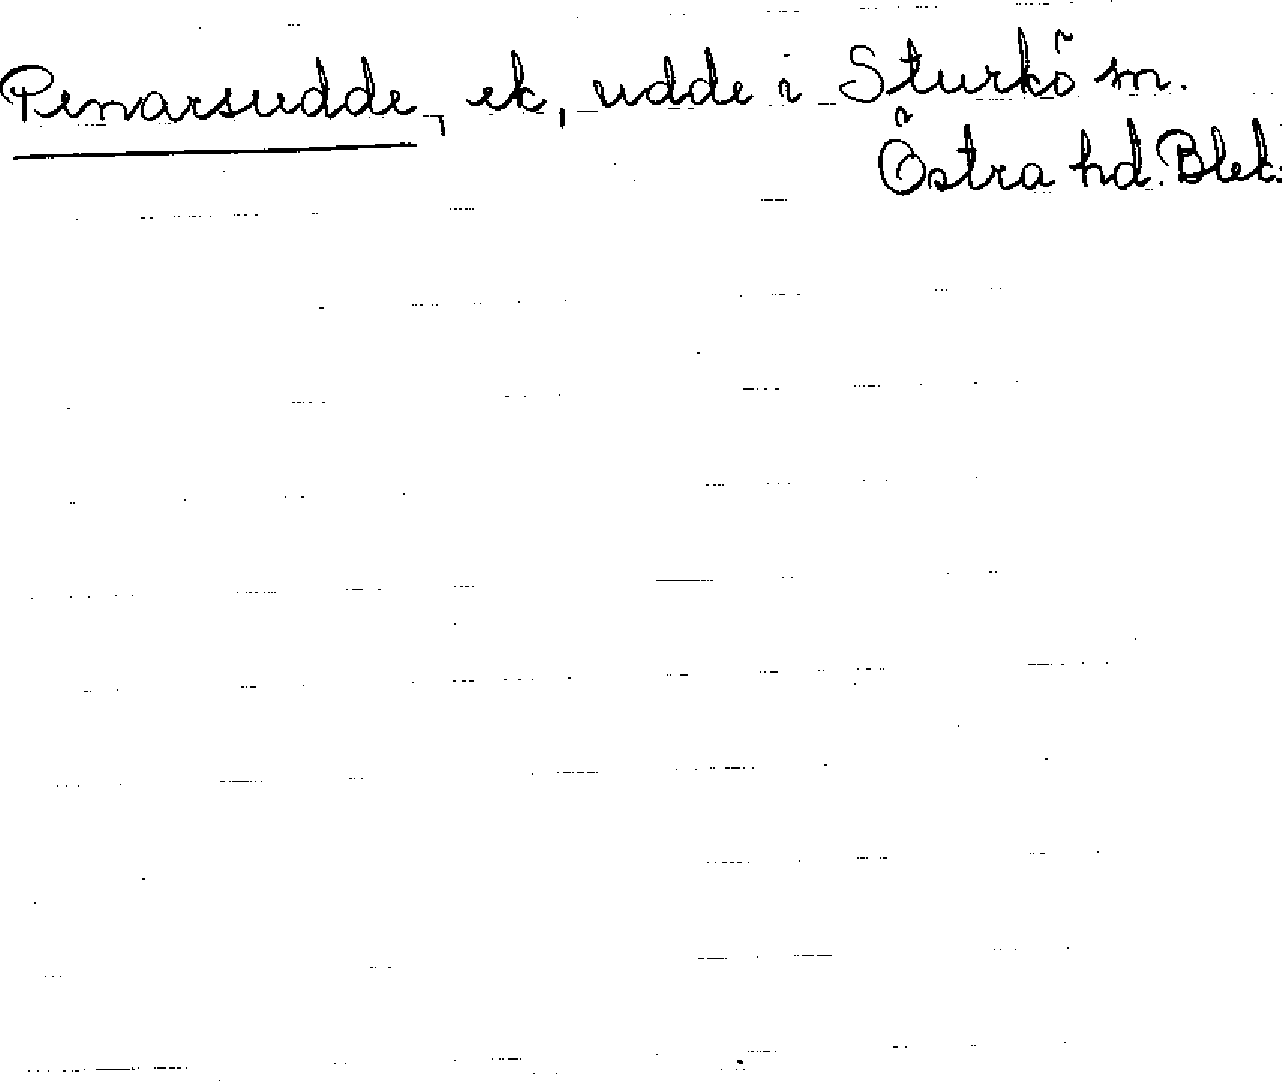 Penarsudde, ek, udde i Sturkö sn.
Östra hd. Blek.